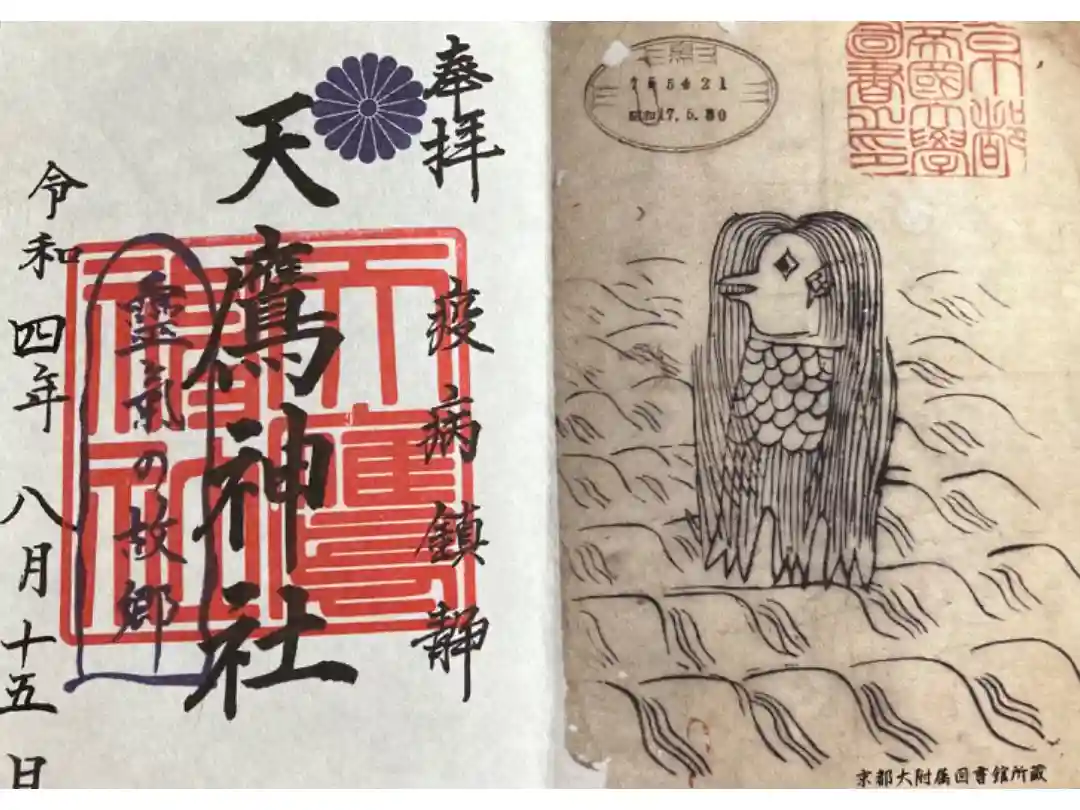 奉拝
疫病鎮静
天鷹神社
天鷹神社
霊気の故郷
令和四年八月十五日
京都帝國大學圖書之印
昭和17.5.30
京都大附属図書館所蔵